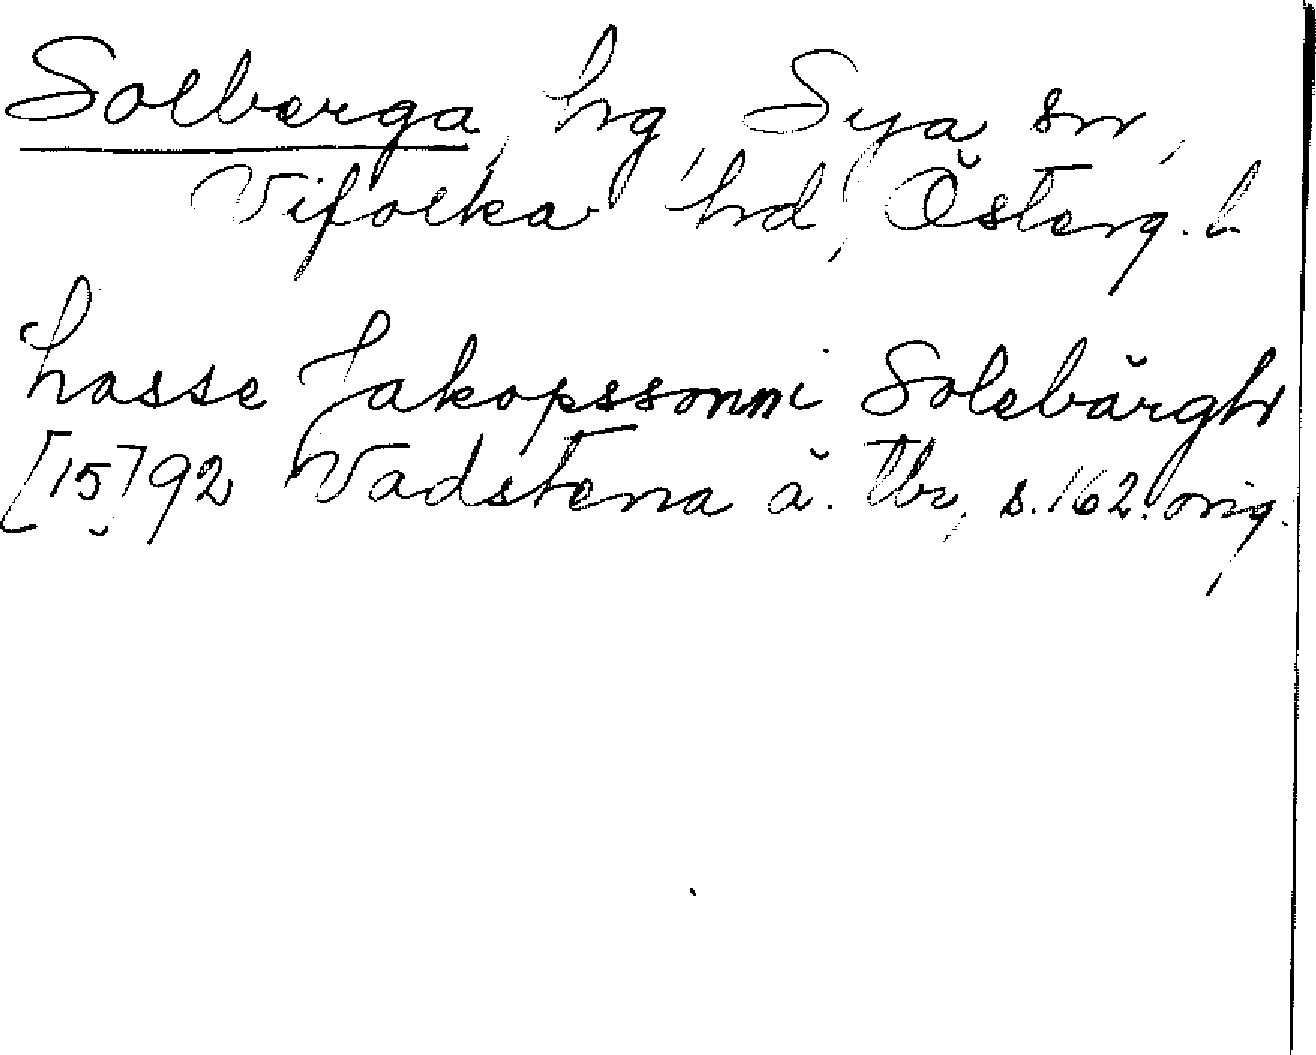 Solberga, hg, Sya sn,
Vifolka hd, Österg. l.
hasse Jakopssonn i Solebärgh
[15]92 Vadstena ä. Tbr, s. 162. orig.